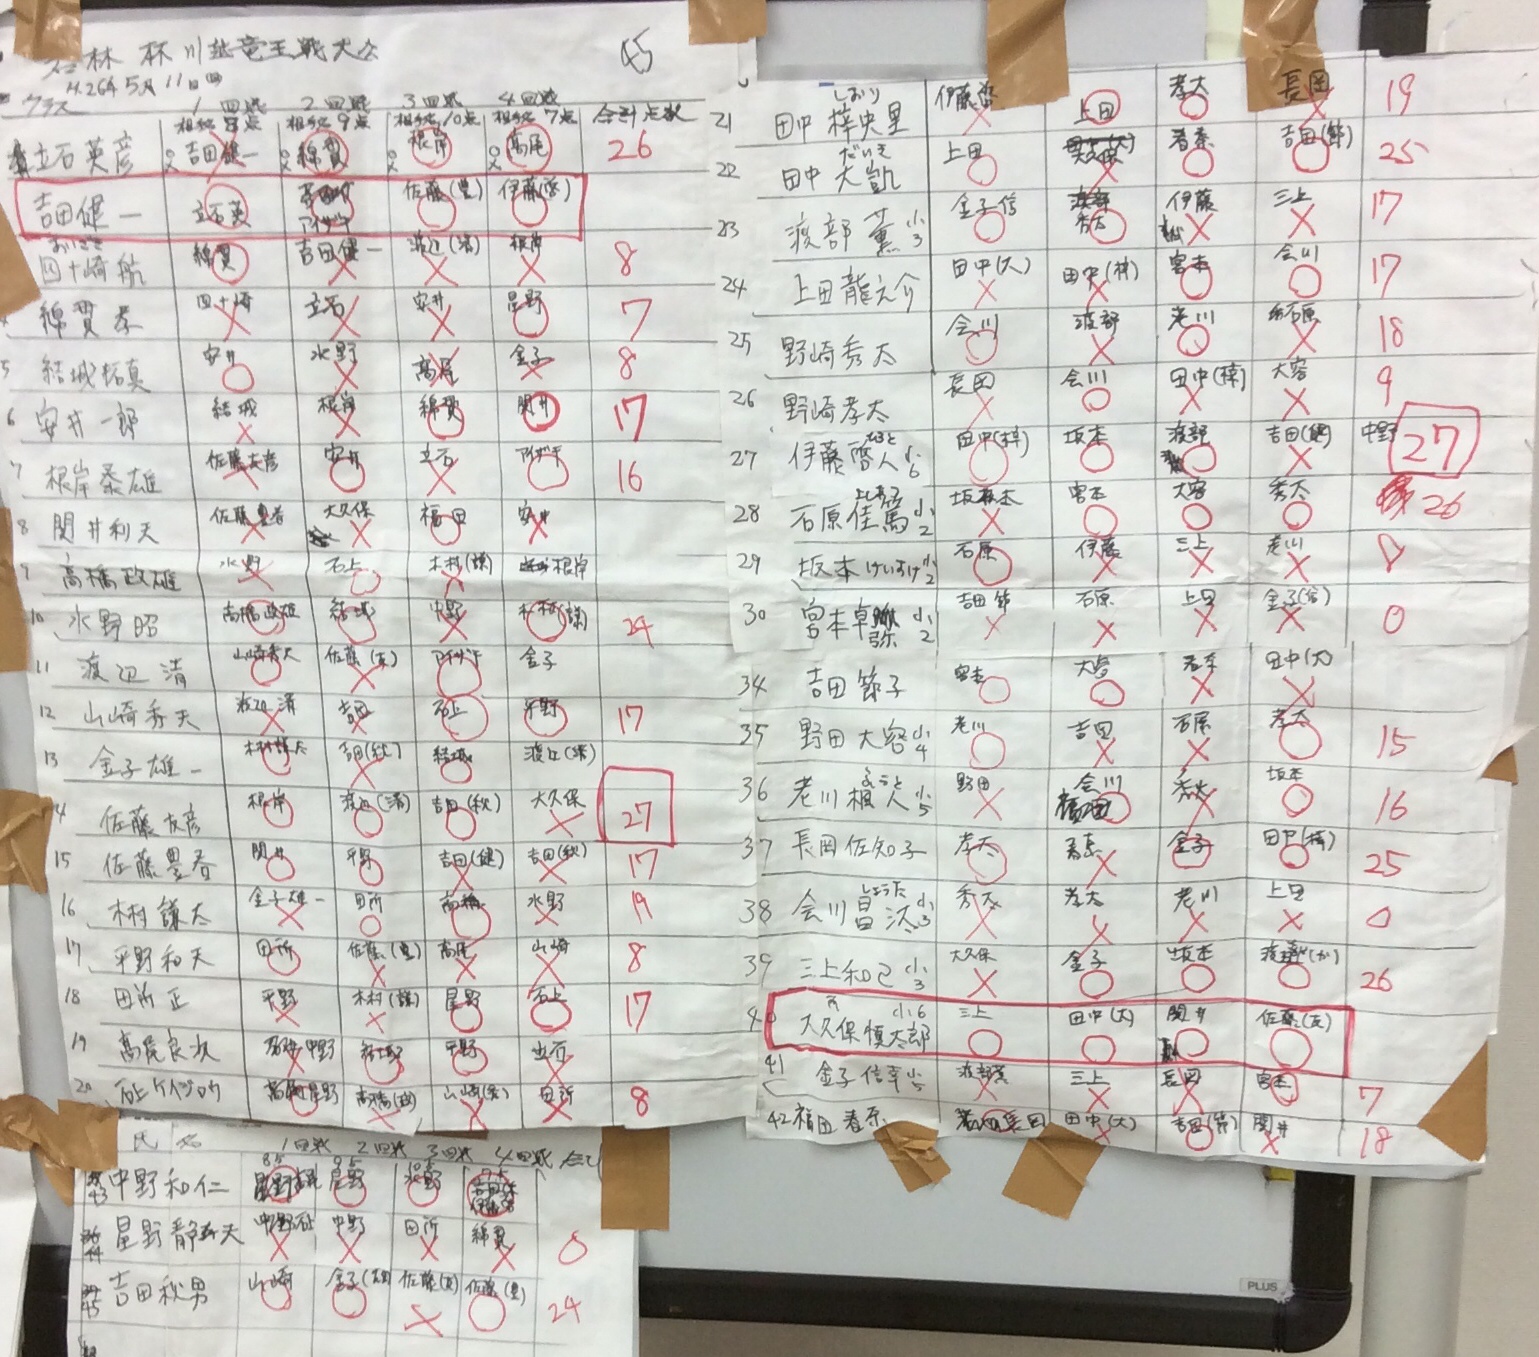 川越竜王戦大会
45
H.26年5月11日(日)
クラス 1回戦 2回戦 3回戦 4回戦
相手 8点 相手 9点 相手 10点 相手 7点 合計点数
立石英彦 吉田健一 綿貫 根岸 高尾 26
吉田健一 立石英 佐藤(豊) 伊藤(啓)
四十崎航 綿貫 吉田健一 渡辺(清) 根岸 8
綿貫孝 四十崎 立石 安井 星野 7
5 結城拓真 安井 水野 高尾 金子 8
6 安井一郎 結城 根岸 綿貫 関井 17
7 根岸泰雄 佐藤友彦 安井 立石 16
8 関井利夫 佐藤豊春 大久保 福田 安井
9 高橋政雄 水野 石上 木村(謙) 根岸
10 水野昭 高橋政雄 結城 中野 木村(謙) 24
11 渡辺清 山崎秀夫 佐藤(友) 金子
12 山崎秀夫 渡辺清 吉田 石上 平野 17
13 金子雄一 木村謙太 吉田(秋) 結城 渡辺(清)
14 佐藤友彦 根岸 渡辺(清) 吉田(秋) 大久保 27
15 佐藤豊春 関井 平野 吉田(健) 吉田(秋) 17
16 木村謙太 金子雄一 田所 高橋 水野 19
17 平野和夫 田所 佐藤(豊) 高尾 山崎 8
18 田所正 平野 木村(謙) 星野 石上 17
19 高尾良次 中野 結城 平野 立石
20 石上ケイジロウ 星野 高橋(政) 山崎(秀) 田所 8
氏名 1回戦 2回戦 3回戦 4回戦
43 中野和仁 星野 水野
44 星野静夫 中野 中野 田所 綿貫 0
45 吉田秋男 山崎 金子(雄) 佐藤(友) 佐藤(豊) 24
しおり
21 田中梓央里 伊藤啓 上田 孝太 長岡 19
だいき
22 田中大凱 上田 大久保 春奈 吉田(節) 25
23 渡部薫 小3 金子信 秀太 伊藤 三上 17
24 上田龍之介 田中(大) 田中(梓) 宮本 会川 17
25 野崎秀太 会川 渡部 老川 石原 18
26 野崎孝太 長岡 会川 田中(梓) 大容 9
27 伊藤啓人 小6 田中(梓) 坂本 渡部 吉田(健) 中野 27
28 石原佳馬 小2 坂本 宮本 大容 秀太 26
29 坂本けいすけ 小2 石原 伊藤 三上 老川 8
30 宮本卓弥 小2 吉田節 石原 上田 金子(信) 0
34 吉田節子 宮本 大容 春奈 田中(大)
35 野田大容 小4 老川 吉田 石原 孝太 15
36 老川楓人 小5 野田 会川 秀太 坂本 16
37 長岡佐知子 孝太 春奈 金子 田中(梓) 25
しょうた
38 会川昌汰 小3 秀太 孝太 老川 上田 0
39 三上和己 小3 大久保 金子 坂本 渡部(か) 26
40 大久保慎太郎 小6 三上 田中(大) 関井 佐藤(友)
41 金子信幸 小5 渡部薫 三上 長岡 宮本 7
42 福田春奈 長岡 田中(大) 吉田(節) 関井 18
PLUS